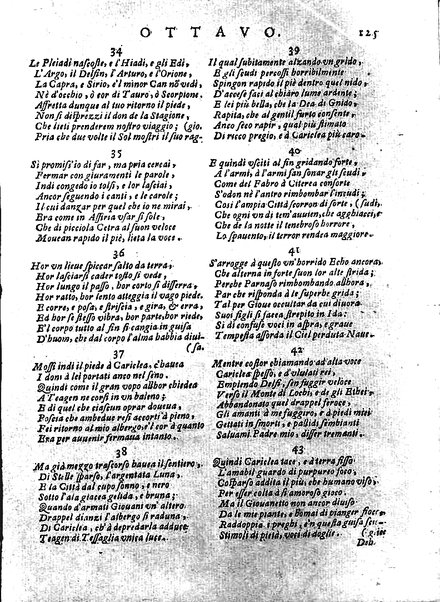 OTTAVO. 125
34
Le Pleiadi nascoste, e l'Hiadi, e gli Edi,
L'Argo, il Delfin, l'Arturo, e l'Orione,
La Capra, e Sirio, e'l minor Can nō vedi,
Nè d'occhio, ò cor di Tauro, ò Scorpione.
Affretta dunque al tuo ritorno il piede,
Non si disprezzi il don de la Stagione,
Che lieti prenderem nostro viaggio; (gio.
Pria che due volte il Sol mostri il suo rag-
35
Si promiss'io di far, ma pria cercai,
Fermar con giuramenti le parole,
Indi congedo io tolsi, e lor lasciai
Ancor seguendo i canti, e le carole;
Il cui danzar per quel che io ne mirai,
Era come in Assiria usar si sole,
Che di picciola Cetra al suon veloce
Movean rapido il piè, lieta la voce.
36
Hor un lieve spiccar salto da terra,
Hor lasciarsi cader tosto si vede,
Hor lungo il passo, hor corto si disserra,
Hor ratto, hor lento atteggia il vago piede.
E corre, e posa, e striscia, e gira, & erra,
Ed hor sì stesso vibra, hor parte, hor riede,
E'l corpo tutto al fin si cangia in guisa
D'huom, che dal corpo l'alma habbia divi-
(sa.
37
Mossi indi il piede à Cariclea, c'havea
I doni à lei portati amo nel sino.
Quindi come il gran vopo allhor chiedea
A Teagen ne corsi in un baleno;
E di quel che ciascun oprar dovea,
Poscia che ambedue resi accorti à pieno,
Fei ritorno al mio albergo, e'l cor à quanto
Era per avvenir fermava intanto.
38
Ma già mezzo trascorso havea il sentiero,
Di Stelle sparso, l'argentata Luna,
E la Città dal cupo sonno, e nero
Sotto l'ala giacea gelida, e bruna;
Quando d'armati Giovani un'altero
Drappel dinanzi l'albergo si raduna,
Di Cariclea, ch'à depredarla adduce
Teagen di Tessaglia unica luce.
39
Il qual subitamente alzando un grido,
E gli scudi percossi horribilmente
Spingon rapido il piè dentro quel nido,
D'accese faci al chiaro lume ardente;
E lei più bella, che la Dea di Gnido,
Rapita, che al gentil furto consente,
Anco seco rapir, qual più stimato
Di ricco pregio, ed à Cariclea più caro.
40
E quindi usciti al fin gridando forte,
A l'armi, à l'armi fan sonar gli scudi;
Come del Fabro à Citerea consorte
S'odon nè l'antro rimbombar l'incudi;
Così l'ampia Città scorron di forte, (sudi,
Che ogni un di tem'avvien, che agghiacci, e
Che de la notte il tenebroso horrore,
Lo spavento, il terror rendea maggiore.
41
S'arroge à questo un'horrido Echo ancora,
Che alterna in forte suon lor alte strida;
Perche Parnaso rimbombando allhora,
Par che risponda à le superbe grida;
Tal per Giove occultar da cui divora
Suoi figli si facea strepito in Ida:
Sì di confuse voci in aspra, e grave
Tempesta assorda il Ciel perduta Nave.
42
Mentre costor chiamando ad alta voce
Cariclea spesso, ed ululati rei,
Empiendo Delfi, sen fuggir veloce
Verso il Monte di Locbi, e de gli Ethei:
Abbandonato quel drappel feroce,
Gli amanti à me fuggiro, e à piedi miei
Gettati in smorti, e pallidi sembianti
Salvami Padre mio, disser tremanti.
43
Quindi Cariclea tace, e à terra fisso
L'amabil guardo di purpureo foco,
Colparso addita il più, che humano viso,
Per esser colla à sì amoroso gioco.
Ma il Giovanetto non ancor diviso
Da le mie piante, e homai di pianger fioco
Raddoppia i preghi, e'n questa guisa sen-
Stimoli di pietà, voci di doglie. (glie
Deh.